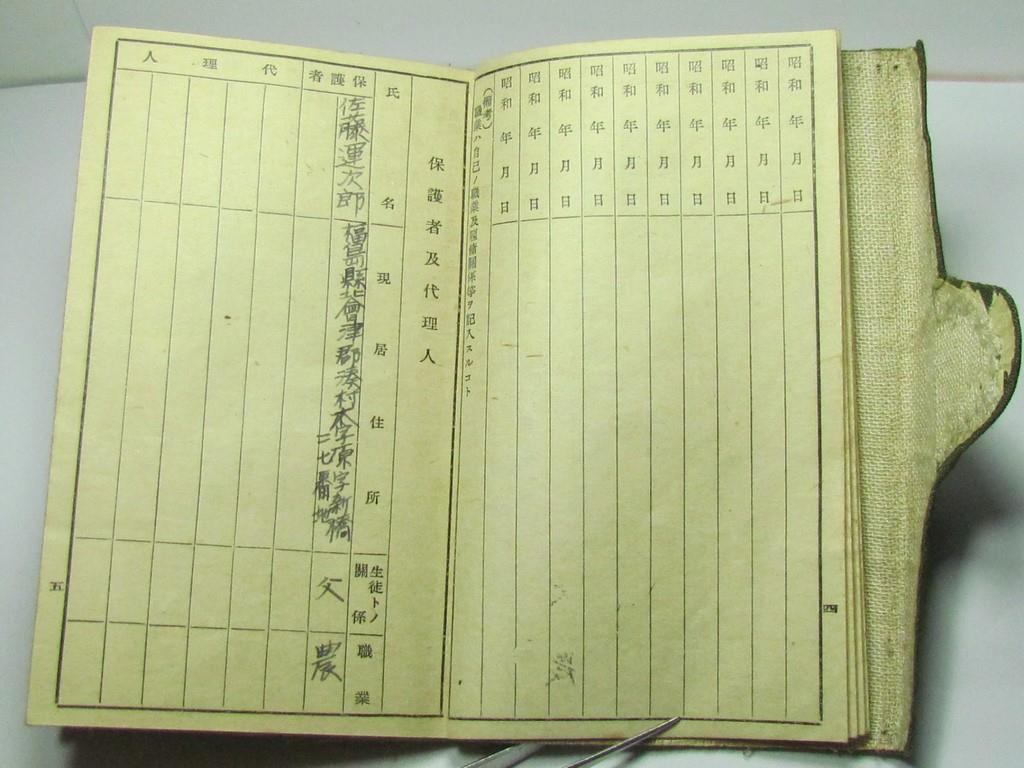 昭和 年 月 日
昭和 年 月 日
昭和 年 月 日
昭和 年 月 日
昭和 年 月 日
昭和 年 月 日
昭和 年 月 日
昭和 年 月 日
昭和 年 月 日
昭和 年 月 日
(備考) 職業ハ自己ノ職業及履修關係等ヲ記入スルコト
四
保護者及代理人
氏名 現居住所 生徒トノ關係 職業
保護者 佐藤運次郎 福島縣北會津郡湊村大字原字新橋
二七番地 父 農
代理人
五